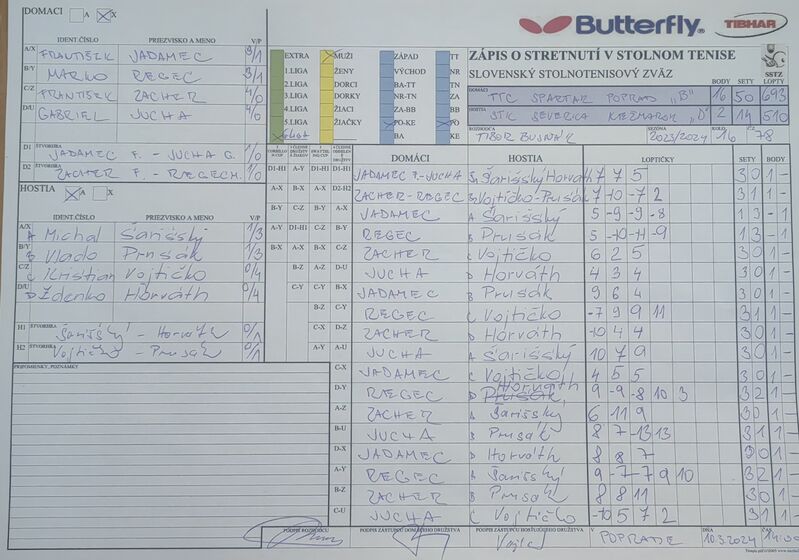 DOMÁCI A X
Butterfly TIBHAR
IDENT.ČÍSLO PRIEZVISKO A MENO V/P
A/X FRANTIŠEK JADAMEC 3/1
B/Y MARKO REGEC 3/1
C/Z FRANTIŠEK ZACHER 4/0
D/U GABRIEL JUCHA 4/0
D1 ŠTVORHRA JADAMEC F. - JUCHA G. 1/0
D2 ŠTVORHRA ZACHER F. - REGEC M. 1/0
EXTRA MUŽI ZÁPAD TT
1.LIGA ŽENY VÝCHOD NR
2.LIGA DORCI BA-TT TN
3.LIGA DORKY NR-TN ZA
4.LIGA ŽIACI ZA-BB BB
5.LIGA ŽIAČKY PO-KE PO
BA KE
ZÁPIS O STRETNUTÍ V STOLNOM TENISE
SLOVENSKÝ STOLNOTENISOVÝ ZVÄZ
SSTZ
BODY SETY LOPTY
DOMÁCI TTC SPARTAK POPRAD "B" 16 50 693
HOSTIA STK SEVERKA KEŽMAROK "D" 2 14 510
ROZHODCA TIBOR BUJNÁK SEZÓNA 2023/2024 KOLO 16 Č. 78
HOSTIA A X
IDENT.ČÍSLO PRIEZVISKO A MENO V/P
A/X A Michal Šarišský 1/3
B/Y B Vlado Prusák 1/3
C/Z C Kristian Vojtičko 0/4
D/U D Zdenko Horváth 0/4
H1 ŠTVORHRA Šarišský - Horváth 0/1
H2 ŠTVORHRA Vojtičko - Prusák 0/1
PRIPOMIENKY, POZNÁMKY
DOMÁCI HOSTIA LOPTIČKY SETY BODY
D1-H1 A-Y D1-H1 D1-H1 JADAMEC F.-JUCHA Šarišský Horváth 7 7 5 3 0 1 -
A-X B-X A-X D2-H2 ZACHER-REGEC Vojtičko-Prusák 7 -10 -7 2
B-Y C-Z B-Y A-X JADAMEC A Šarišský 5 -9 -9 -8 1 3 - 1
A-Y D1-H1 C-Z B-Y REGEC B Prusák 5 -10 -11 -9 1 3 - 1
B-X A-X B-X C-Z ZACHER C Vojtičko 6 2 5 3 0 1 -
B-Z A-Z D-U JUCHA D Horváth 4 3 4 3 0 1 -
C-Y C-Y B-X JADAMEC B Prusák 9 6 4 3 0 1 -
B-Z C-Y REGEC C Vojtičko -7 9 9 11 3 1 1 -
C-X D-Z ZACHER D Horváth -10 4 4
A-Y A-U JUCHA A Šarišský 10 7 9 3 0 1 -
C-X JADAMEC C Vojtičko 4 5 5 3 0 1 -
D-Y REGEC D Horváth 9 -9 -8 10 3 3 2 1 -
A-Z ZACHER A Šarišský 6 11 9 3 0 1 -
B-U JUCHA B Prusák 8 7 -13 13 3 1 1 -
D-X JADAMEC D Horváth 8 8 7 3 0 1 -
A-Y REGEC A Šarišský 9 -7 -7 9 10 3 2 1 -
B-Z ZACHER B Prusák 8 8 11 3 0 1 -
C-U JUCHA C Vojtičko -10 5 7 2 3 1 1 -
PODPIS ROZHODCU PODPIS ZÁSTUPCU DOMÁCEHO DRUŽSTVA PODPIS ZÁSTUPCU HOSŤUJÚCEHO DRUŽSTVA V POPRADE DŇA 10.3.2024 ČAS